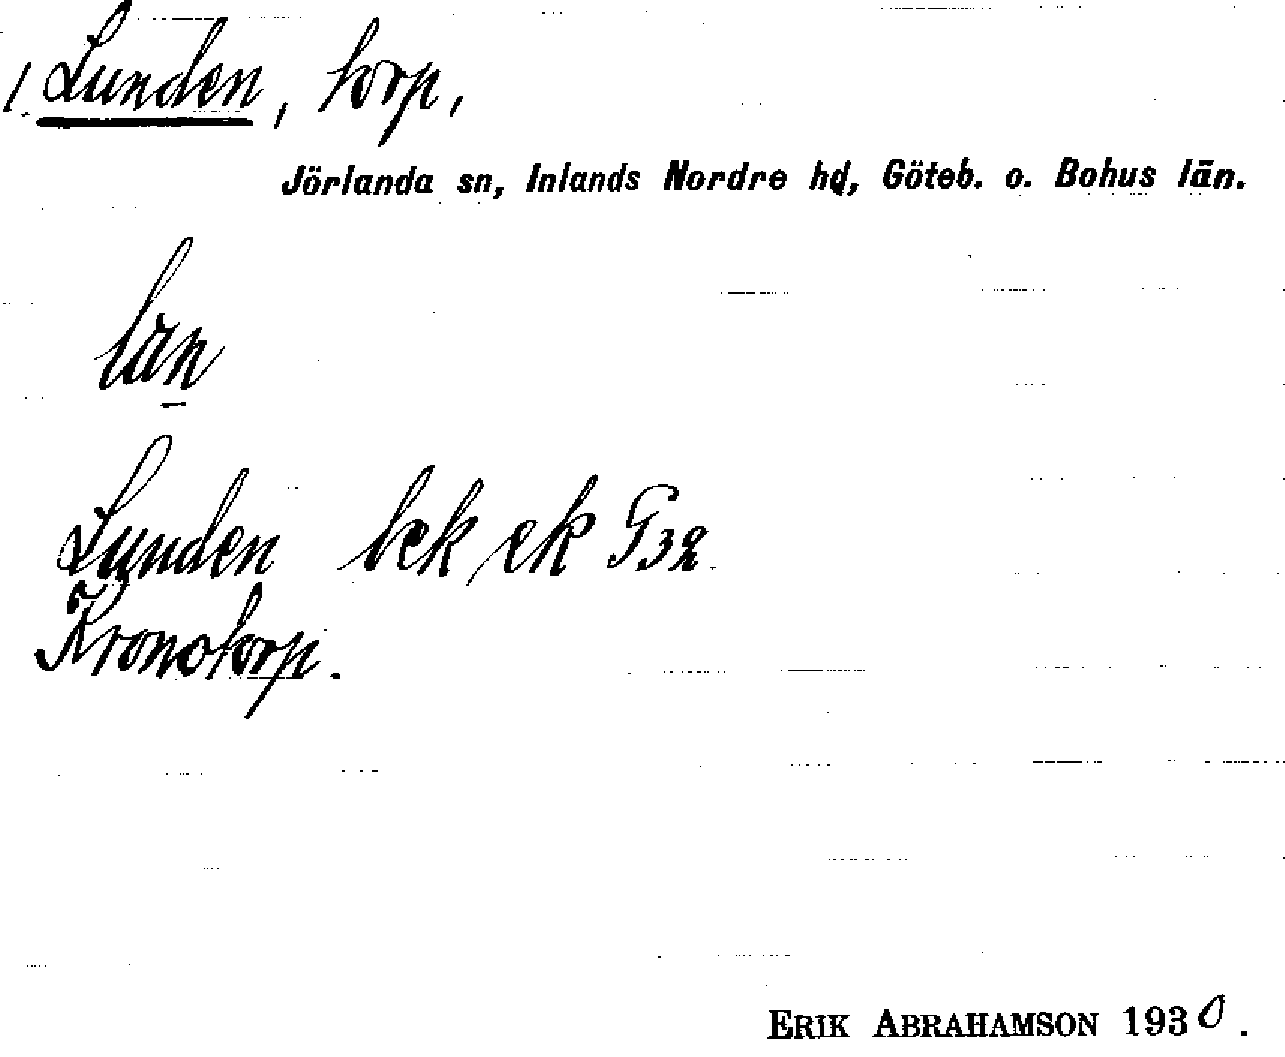 1. Lunden, torp,
Jörlanda sn, Inlands Nordre hd, Göteb. o. Bohus län.
Lunden bek ek G32
Kronotorp.
ERIK ABRAHAMSON 1930.